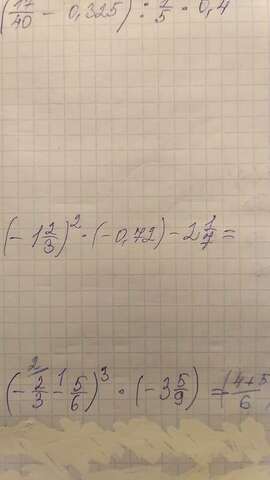 (17/40 - 0,325) : 1/5 · 0,4
(-1 2/3)² · (-0,72) - 2 1/7 =
(-2/3 - 5/6)³ · (-3 5/9) = (4+5/6